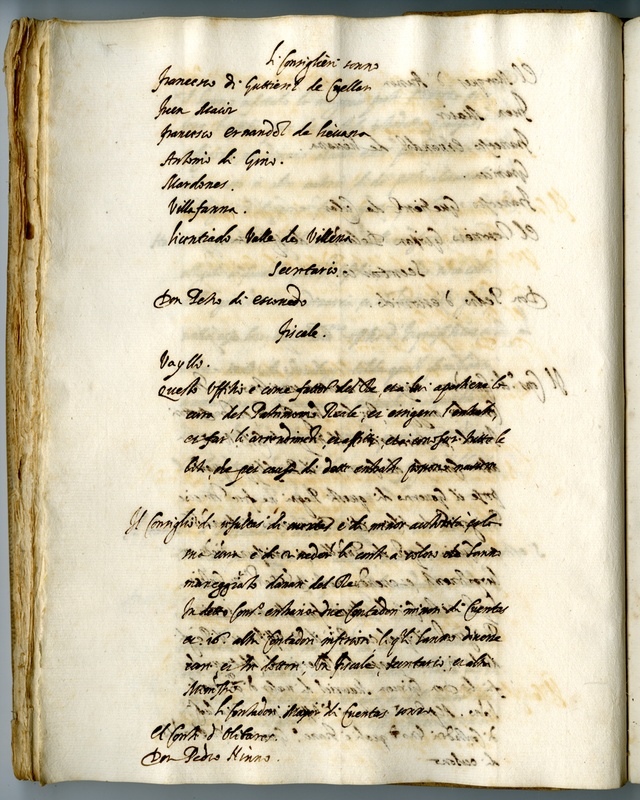 Li Consiglieri sonno
Francesco di Guttierz de Cuellar
Juan
Francesco ernandez de lievana
Antonio di Gino.
Mardones.
Villafanna.
licentiado Valle de Villena
Secretario.
Don Pedro di escovedo
fiscale.
Vayllo.
Questo Uffitio è come fattor del Re, et a lui apartiene la
cura del Patrimonio Reale, et exigere l'entrate,
et far li arrendimenti, et affitti, et a conoscer tutte le
liti, che per causa di dette entrate possono nascere
Il Consiglio di di cuentas è di minor auttorità, e la
cura è di riveder li conti a coloro che hanno
maneggiato danari del Re
In detto Cons.o entrano Contadori minori di Cuentas
et 16 altri Contadori inferiori
et fiscale, secretario, et altri
Ministri
Li Contadori Mayor di Cuentas sonno
El Conte d'Olivares.
Don Pedro Ninno.